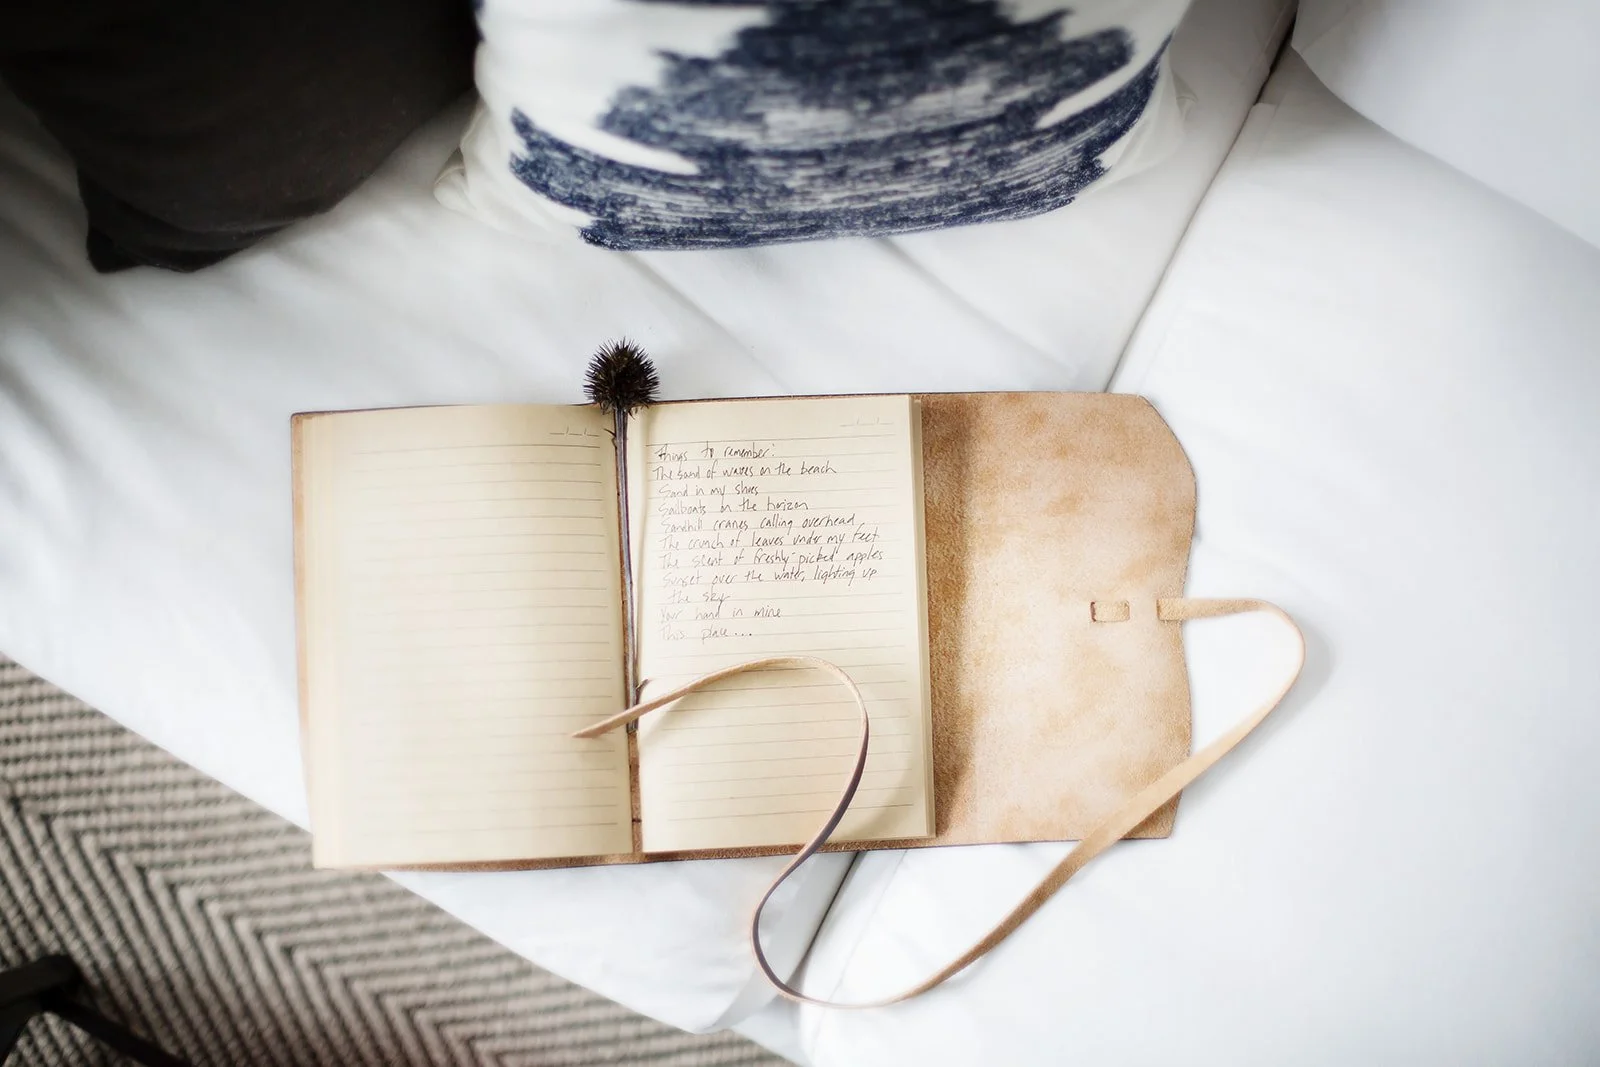 Things to remember:
The sand of waves on the beach
Sand in my shoes
Sailboats on the horizon
Sandhill cranes calling overhead
The crunch of leaves under my feet
The scent of freshly-picked apples
Sunset over the water, lighting up
the sky
Your hand in mine
This place...